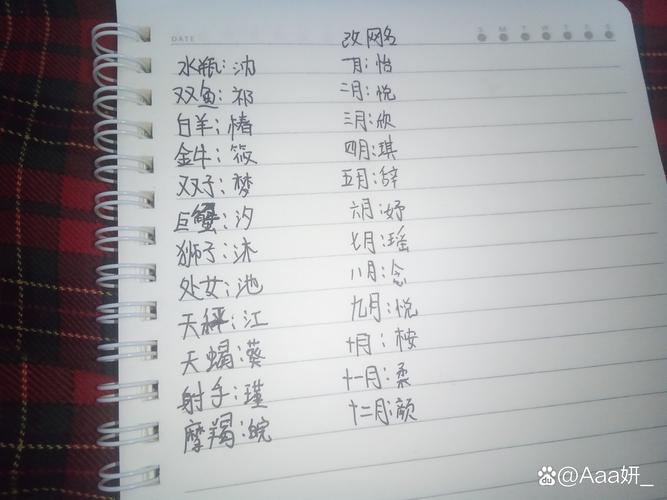 DATE
S M T W T F S
改网名
水瓶：沈
双鱼：祁
白羊：椿
金牛：筱
双子：梦
巨蟹：汐
狮子：沐
处女：池
天秤：江
天蝎：葵
射手：瑾
摩羯：皖
一月：怡
二月：悦
三月：欣
四月：琪
五月：辞
六月：妤
七月：瑶
八月：念
九月：悦
十月：桉
十一月：柔
十二月：颜
@Aaa妍_